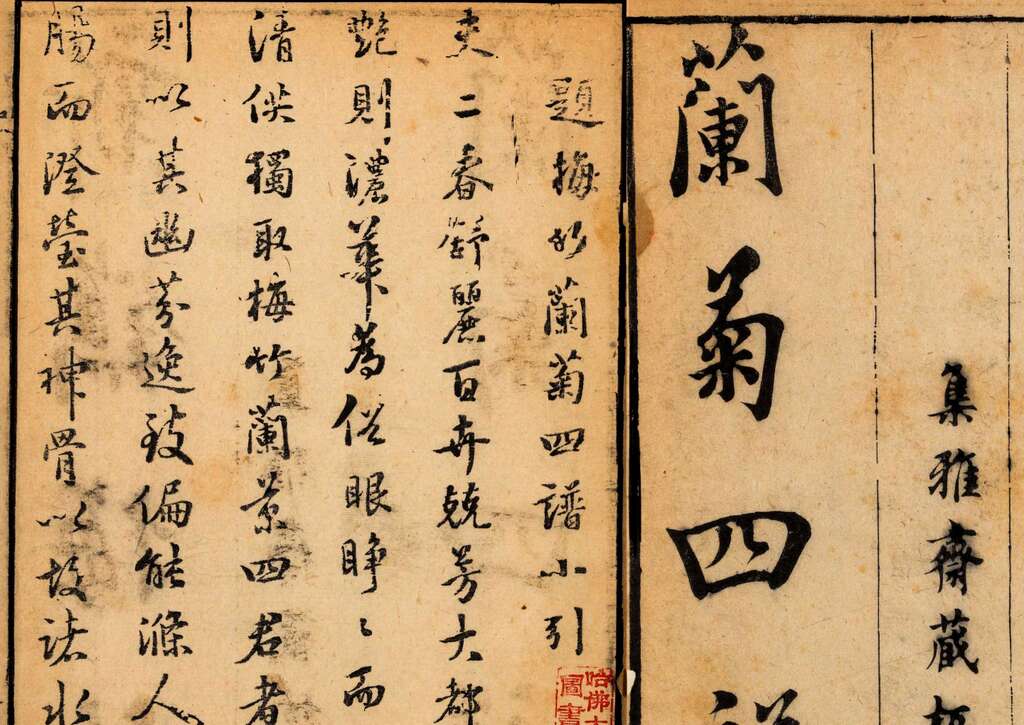 集雅齋藏
蘭菊四
題梅竹蘭菊四譜小引
夫二春舒麗百卉競芳大都
艷則濃華為俗眼睜〻而
清供獨取梅竹蘭菊四君者
則以其幽芬逸致偏能滌人
腸而澄瑩其神骨以故諸水
哈佛大
圖書